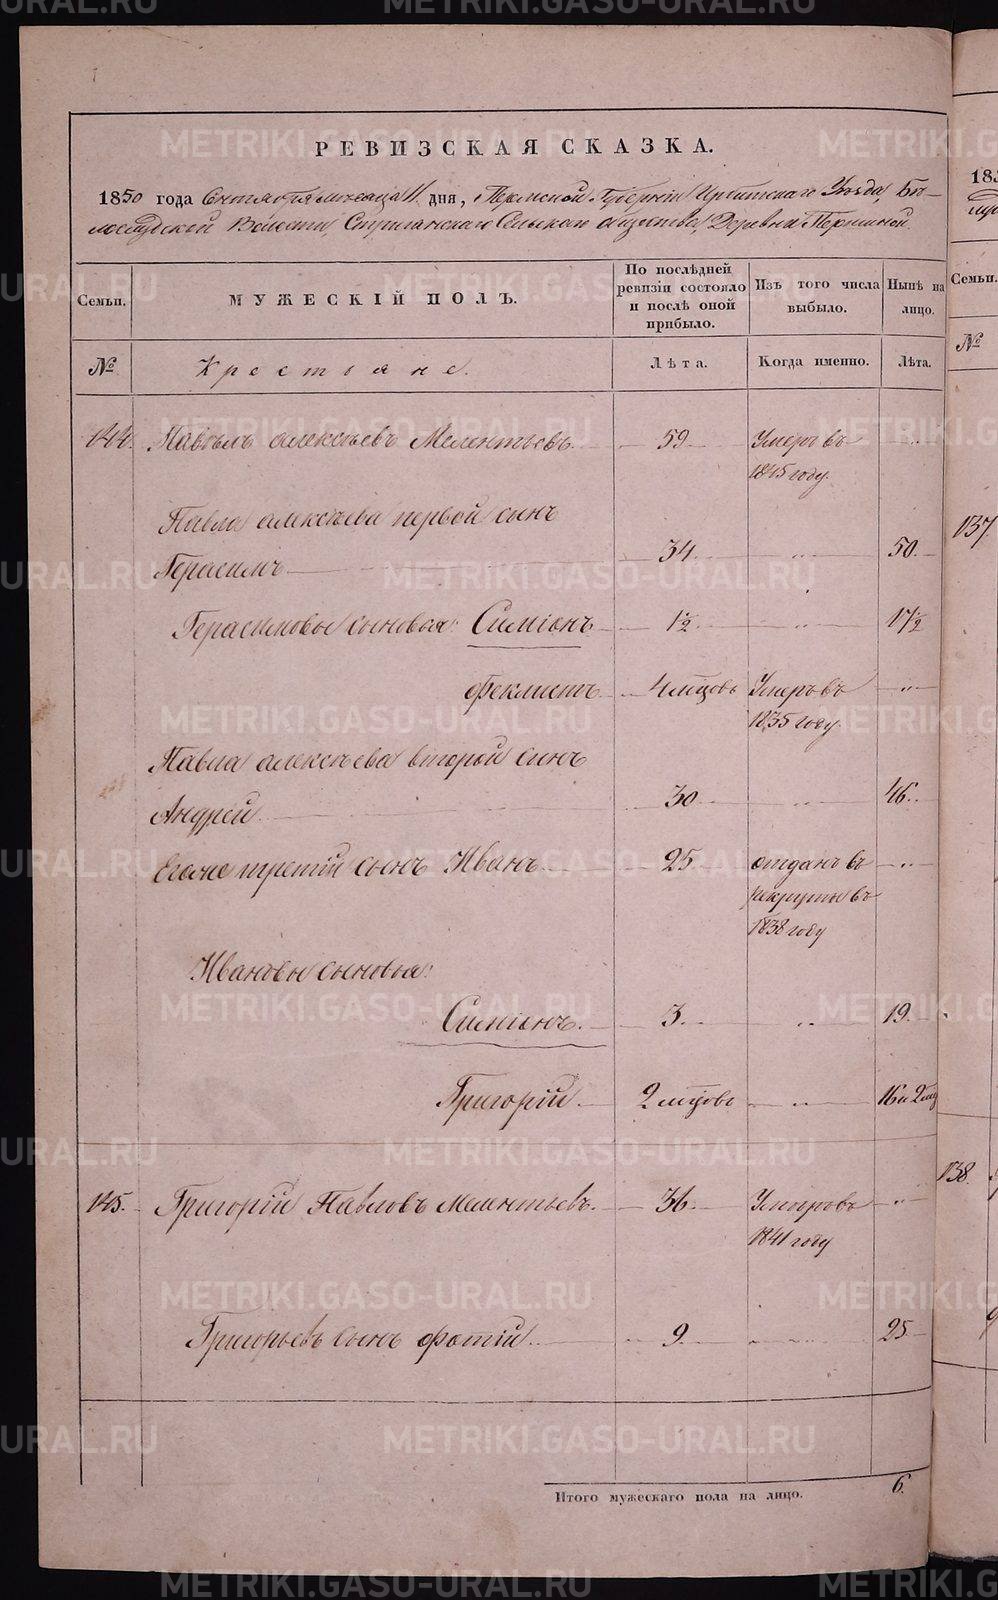 METRIKI.GASO-URAL.RU
РЕВИЗСКАЯ СКАЗКА.
1850 года Сентября месяца 11 дня, Пермской Губернiи Ирбитскаго Уезда, Бѣ-
лослудской Волости, Стриганскаго Сельскаго общества, Деревни Першиной.
Семьи.
МУЖЕСКІЙ ПОЛЪ.
По послѣдней ревизіи состояло и послѣ оной прибыло.
Изъ того числа выбыло.
Нынѣ на лицо.
№
Крестьяне.
Лѣта.
Когда именно.
Лѣта.
144. Павелъ алексѣевъ Мелентьевъ. 59. Умеръ въ „
1845 году.
Павла алексѣева первой сынъ
Герасимъ 34. „ 50.
Герасимовы сыновья: Симіонъ 1½ „ 17½
Феклистъ 4 мѣсцовъ Умеръ въ „
1835 году.
Павла алексѣева второй сынъ
Андрей 30 „ 46.
Егоже третій сынъ Иванъ 25. отданъ въ „
рекруты въ
1838 году
Ивановы сыновья:
Симіонъ. 3. „ 19.
Григорій. 2 мѣсцовъ „ 16 и 2 мѣс
145. Григорій Павловъ Мелентьевъ. 36. Умеръ въ „
1841 году
Григорьевъ сынъ фотій 9. „ 25
Итого мужескаго пола на лицо. 6.
183
Семьи.
№
137.
138.